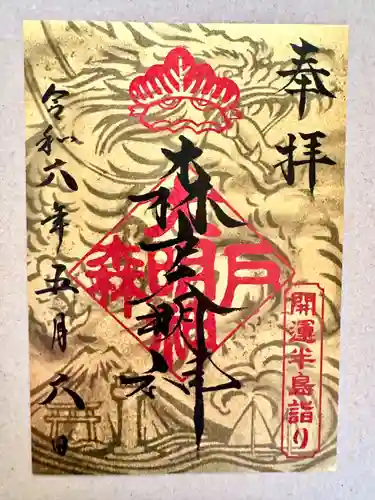 奉拝
開運半島詣り
森戸大明神
森戸
大明神
令和六年五月八日